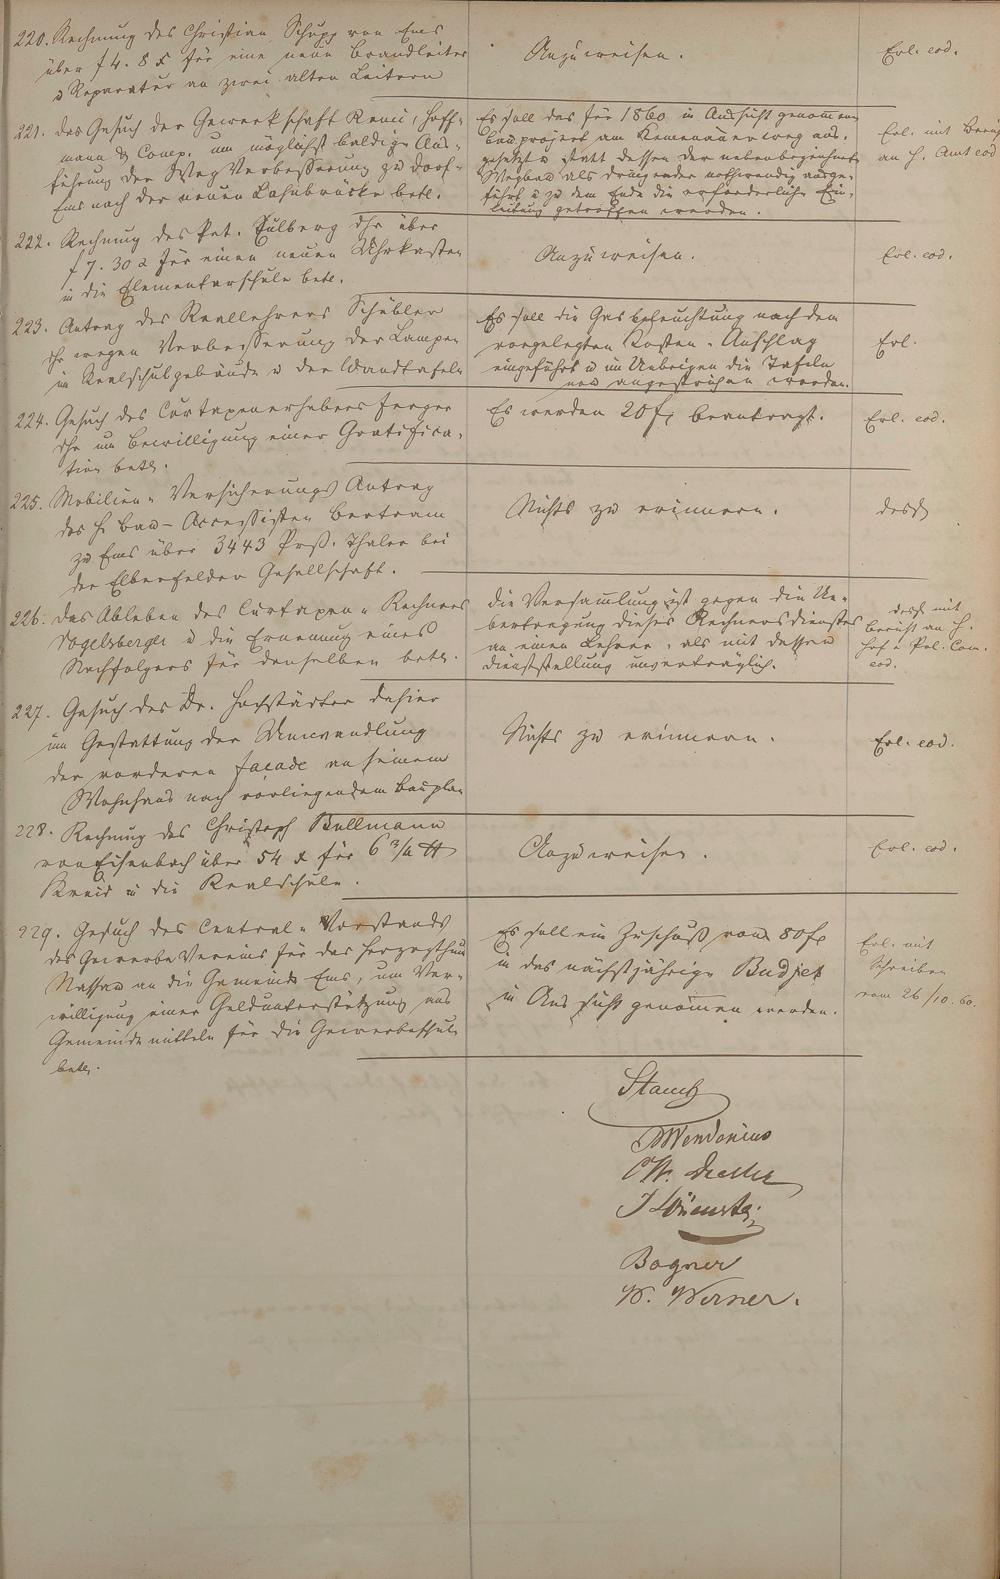 220. Rechnung des Christian Schupp von Ems
über f 4. 8 x für eine neue Brandleiter
u Reparatur an zwei alten Leitern
Anzuweisen.
Erl. eod.
221. Das Gesuch der Gewerkschaft Remi, Hoff-
mann & Comp. um möglichst baldige Aus-
führung der Weg Verbesserung zu Dorf-
Ems nach der neuen Lahnbrücke betr.
Es soll das für 1860 in Aussicht genommene
Bauprojekt am Kemenauerweg aus-
gesetzt u statt dessen der nebenbezeichnete
Wegbau als dringender nothwendig ausge-
führt u zu dem Ende die erforderliche Ein-
leitung getroffen werden.
Erl. mit Bericht
an H. Amt eod
222. Rechnung des Pet. Fulberg dhr über
f 7. 30 x für einen neuen Uhrkasten
in die Elementarschule betr.
Anzuweisen.
Erl. eod.
223. Antrag des Reallehrers Schübler
dhr wegen Verbesserung der Lampen
im Realschulgebäude u der Wandtafeln
Es soll die Gasbeleuchtung nach dem
vorgelegten Kosten-Anschlag
eingeführt u im Uebrigen die Tafeln
neu angestrichen werden.
Erl.
224. Gesuch des Curtaxenerhebers Ferger
dhr um Bewilligung einer Gratifica-
tion betr.
Es werden 20 fl beantragt.
Erl. eod.
225. Mobilien-Versicherungs Antrag
des H Bau-Accessisten Bertram
zu Ems über 3443 Prß. Thaler bei
der Elberfelder Gesellschaft.
Nichts zu erinnern.
desgl
226. Das Ableben des Curtaxen-Rechners
Vogelsberger u die Ernennung eines
Nachfolgers für denselben betr.
Die Versammlung ist gegen die Ue-
bertragung dieses Rechnersdienstes
an einen Lehrer, als mit dessen
Dienststellung unverträglich.
desgl mit
Bericht an H.
Hof u Pol. Com.
eod.
227. Gesuch des Dr. Hochstädter dahier
um Gestattung der Umwandlung
der vorderen façade an seinem
Wohnhaus nach vorliegendem Bauplan
Nichts zu erinnern.
Erl. eod.
228. Rechnung des Christoph Bullmann
von Eisenbach über 54 x für 6 3/4 ℔
Kreid in die Realschule.
Anzuweisen.
Erl. eod.
229. Gesuch des Central-Vorstands
des Gewerbe Vereins für das Herzogthum
Nassau an die Gemeinde Ems, um Ver-
willigung einer Geldunterstützung aus
Gemeindemitteln für die Gewerbeschule
betr.
Es soll ein Zuschuß von 80 fl
in das nächstjährige Budjet
in Aussicht genommen werden.
Erl. mit
Schreiben
vom 26/10.60.
Wendenius
Bogner
W. Werner.